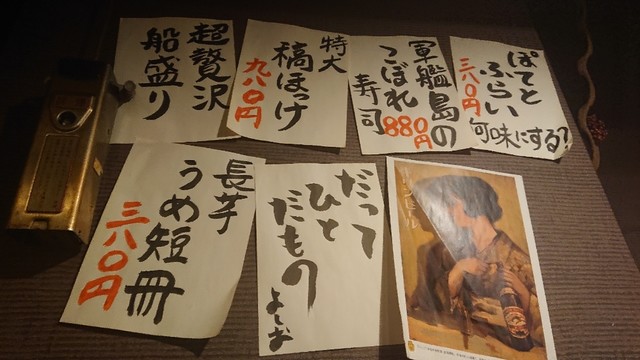 超贅沢
船盛り
特大
縞ほっけ
九八〇円
軍艦島の
こぼれ
寿司
880円
ぽてと
ふらい
何味にする?
三八〇円
長芋
うめ短冊
三八〇円
だって
ひと
だもの
よしお